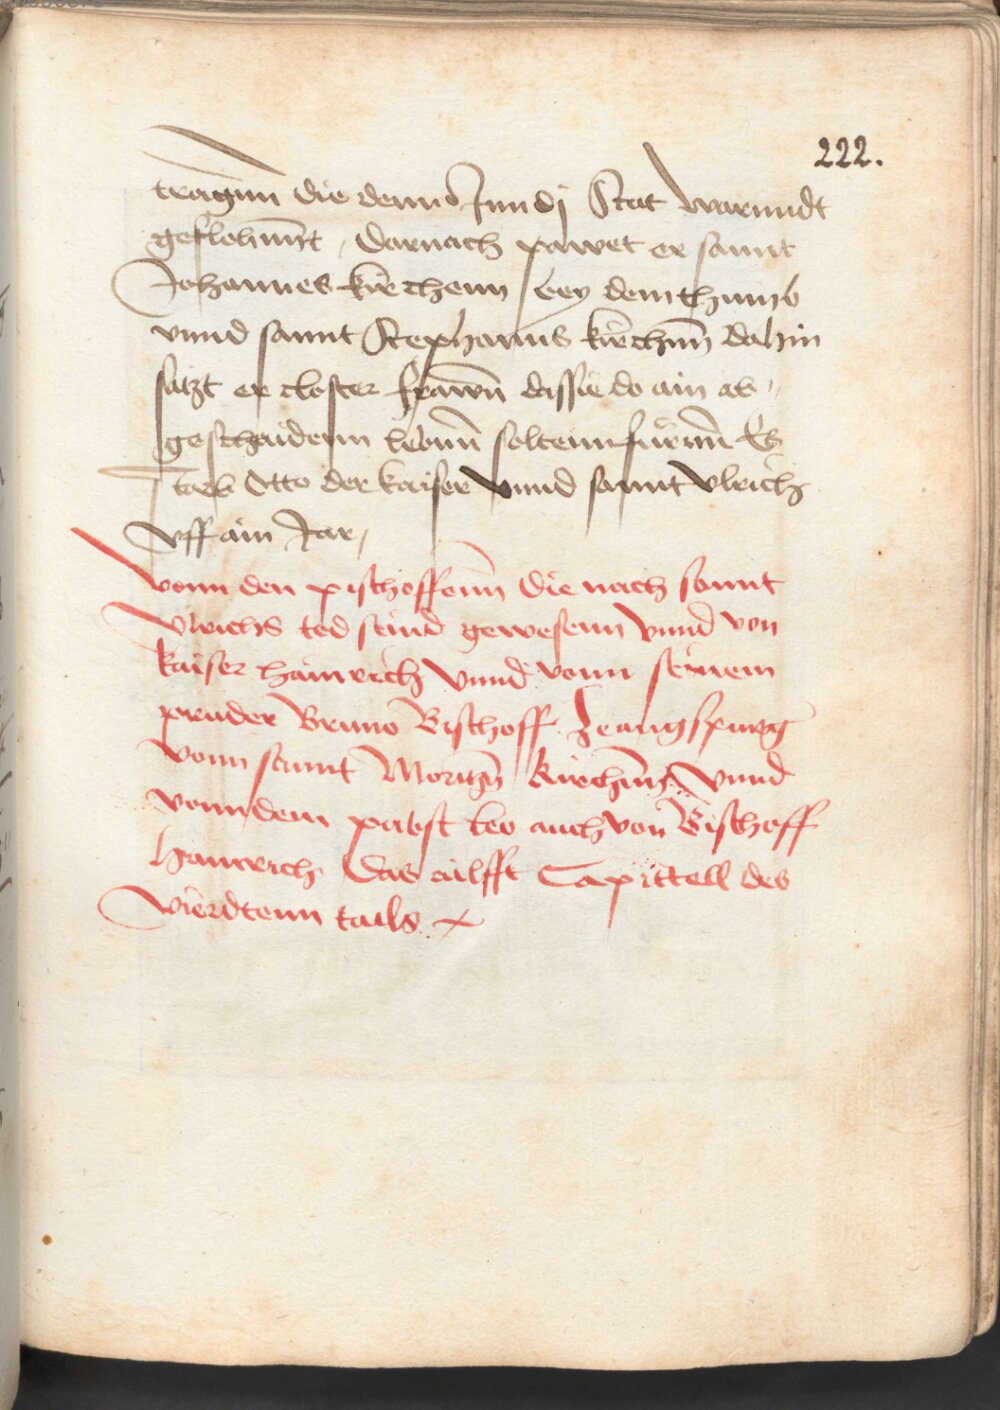 222.
tragnn die dennocht Inn dj Stat warundt
geflohnnt, Darnach pawet er sannt
Johannes kirchenn bey dem thumb
vnnd sannt Stephanns kirchnn dahin
satzt er closter frawn dassie do ain ab,
geschaidenn lebnn soltenn fürnn Es
starb Otto der kaiser vnnd sannt vlrich
vff ain Jar,
Vonn den pischoffenn die nach sannt
vlrichs tod seind gewesenn vnnd von
kaiser hainrich vnnd vonn seinem
pruder Bruno Bischoff Zeaugspurg
vonn sannt Moritzn kirchnn vnnd
vonn dem pabst leo auch von Bischoff
hainrich Das ailfft Capittell des
vierdtenn tails